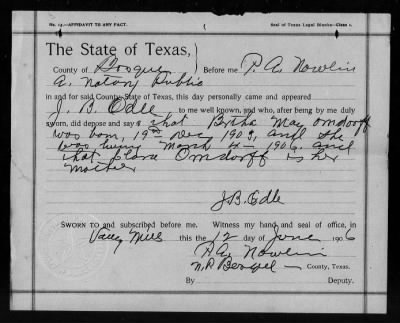 No. 14.—AFFIDAVIT TO ANY FACT.
Seal of Texas Legal Blanks—Class 1.
The State of Texas,
County of Bosque Before me P. A. Nowlin
A. Notary Public
in and for said County and State of Texas, this day personally came and appeared
J. B. Odle to me well known, and who, after being by me duly
sworn, did depose and say s that Birtha May Orndorff
was born, 19th Dec 1903, and she
was living March 4- 1906. and
that Clara Orndorff is her
mother
J B. Odle
SWORN to and subscribed before me. Witness my hand and seal of office, in
Mills this the 12 day of June 1906
P. A. Nowlin
N. P. Bosque County, Texas.
By Deputy.